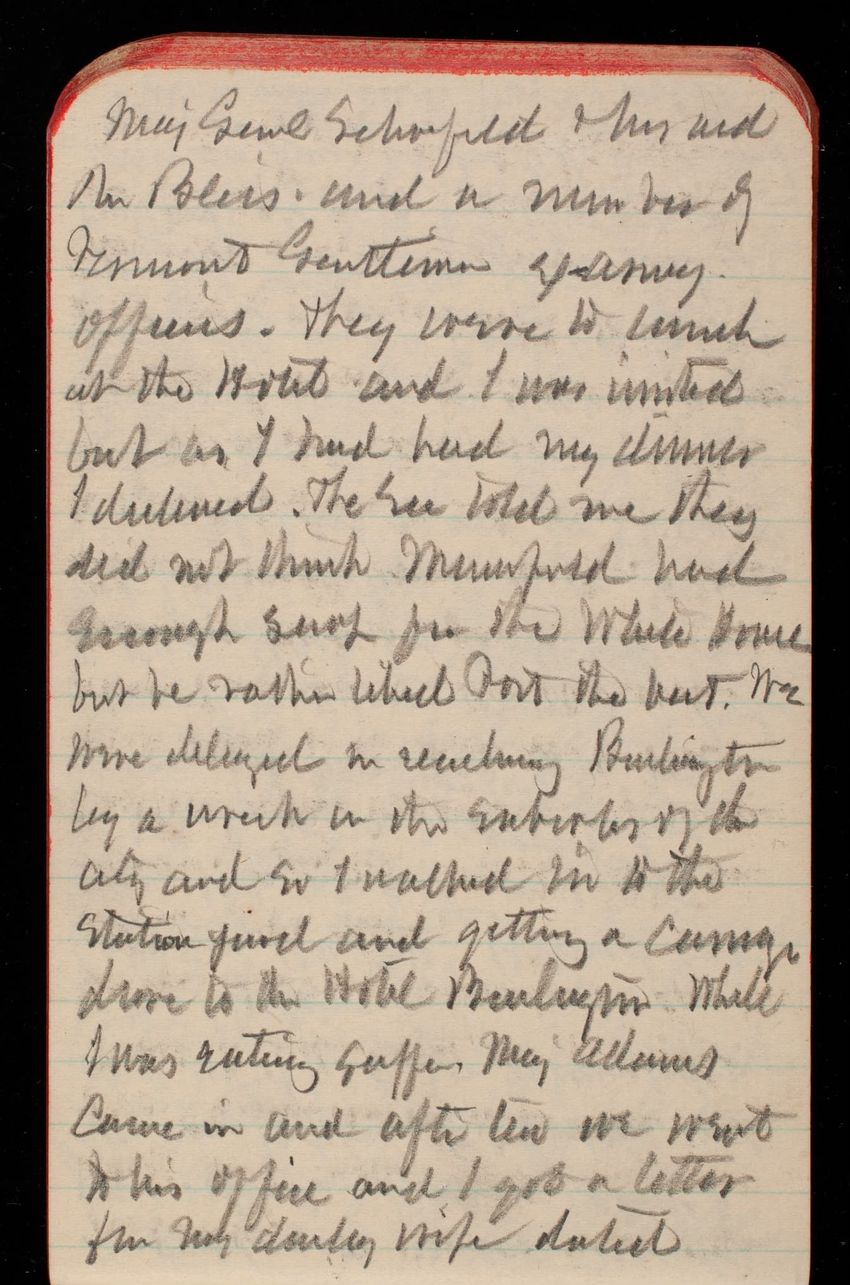 Maj Genl Schofield & his aid
Mr Bliss and a number of
Vermont Gentlemen ex army
officers. They were to lunch
at the Hotel and I was invited
but as I had had my dinner
I declined. The Gen told me they
did not think had
enough snap for the White House
but he rather liked Port the best. We
were delayed in reaching Burlington
by a wreck in the suburbs of the
city and so I walked in to the
station yard and getting a carriage
drove to the Hotel Burlington While
I was eating supper Maj Adams
came in and after tea we went
to his office and I got a letter
from my darling wife dated